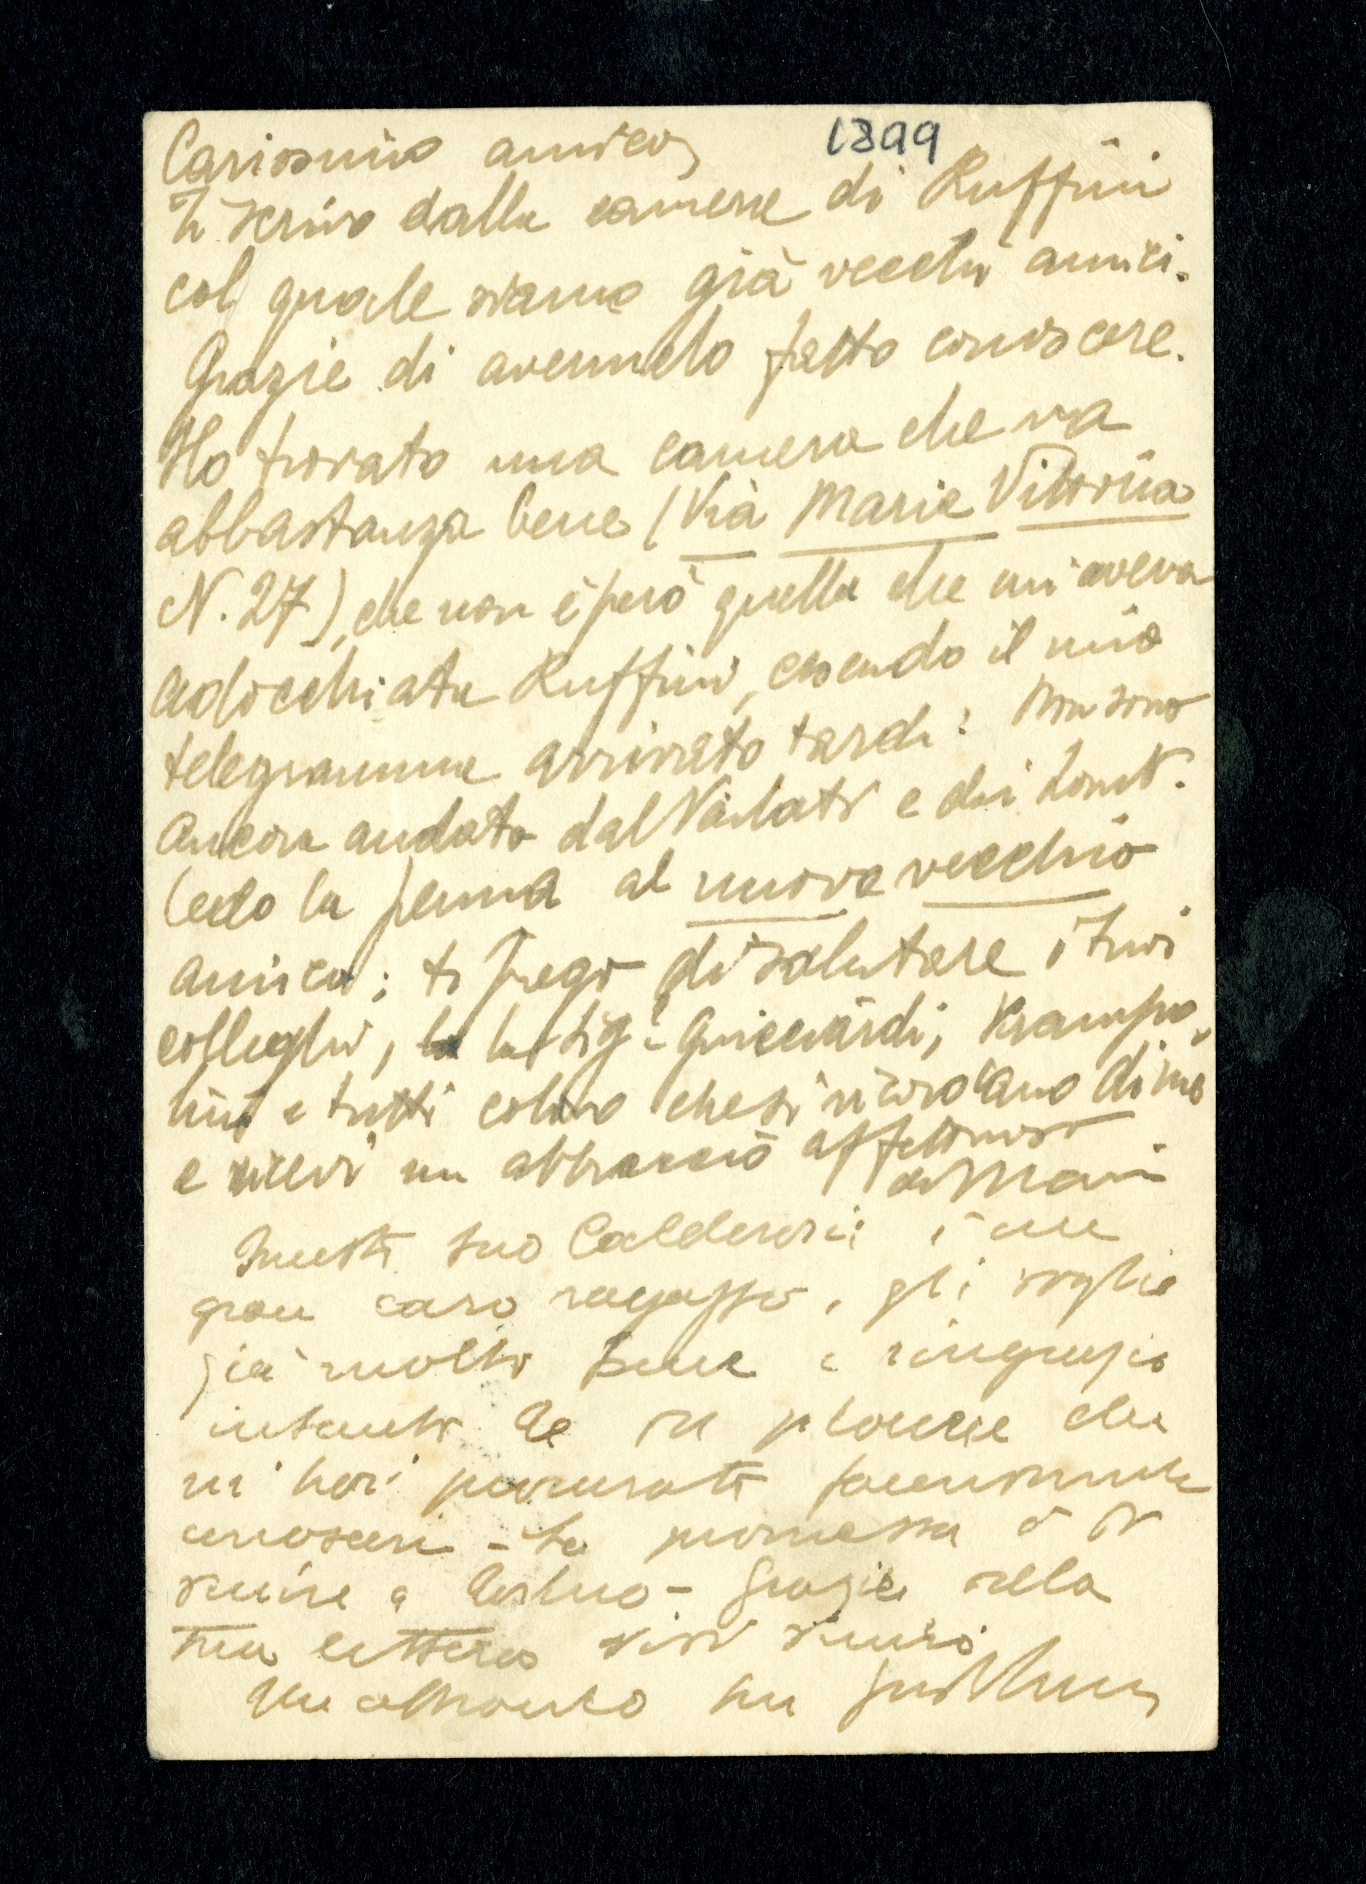 Carissimo amico, 1899
Ti scrivo dalla camera di Ruffini
col quale siamo già vecchi amici.
Grazie di avermelo fatto conoscere.
Ho trovato una camera che va
abbastanza bene (Via Maria Vittoria
N. 27), che non è però quella che mi aveva
adocchiata Ruffini, essendo il mio
telegramma arrivato tardi. Non sono
ancora andato dal Vailati e dai Lomb.
Cedo la penna al nuovo vecchio
amico; ti prego di salutare i tuoi
colleghi, la Sig.a Guicciardi, Krampo
lini e tutti coloro che si ricordano di me
e ricevi un abbraccio affettuoso
Mario
Questo tuo Calderoni è un
gran caro ragazzo, gli voglio
già molto bene e ringrazio
intanto te del piacere che
mi hai procurato facendomelo
conoscere - La promessa è di
venire a - Grazie della
tua lettera
Un abbraccio tuo